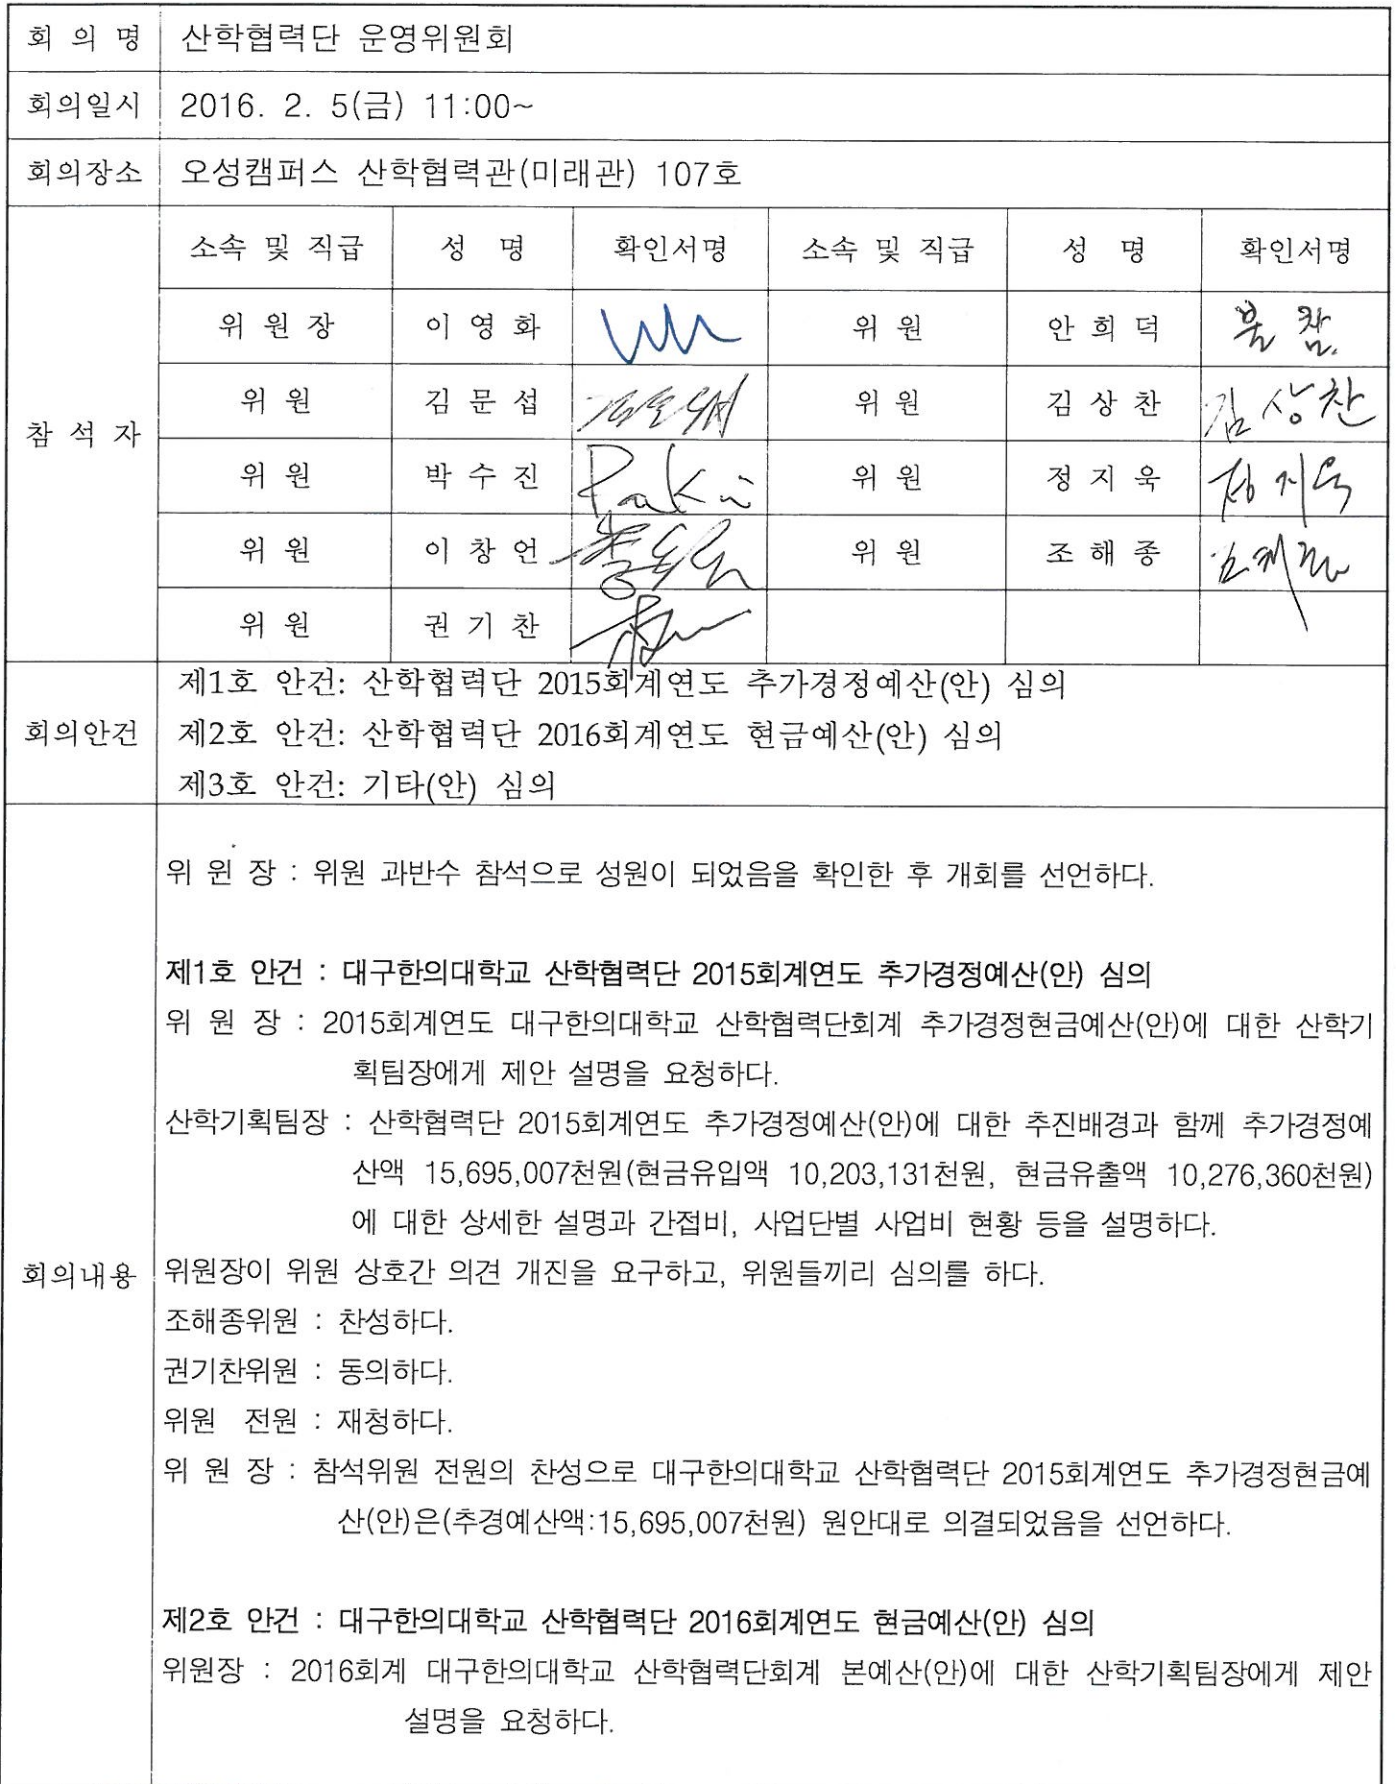 회 의 명 산학협력단 운영위원회
회의일시 2016. 2. 5(금) 11:00~
회의장소 오성캠퍼스 산학협력관(미래관) 107호
참 석 자
소속 및 직급 성 명 확인서명 소속 및 직급 성 명 확인서명
위 원 장 이 영 화 위 원 안 희 덕 불 참.
위 원 김 문 섭 위 원 김 상 찬 김상찬
위 원 박 수 진 위 원 정 지 욱 정지욱
위 원 이 창 언 위 원 조 해 종
위 원 권 기 찬
회의안건
제1호 안건: 산학협력단 2015회계연도 추가경정예산(안) 심의
제2호 안건: 산학협력단 2016회계연도 현금예산(안) 심의
제3호 안건: 기타(안) 심의
회의내용
위 원 장 : 위원 과반수 참석으로 성원이 되었음을 확인한 후 개회를 선언하다.
제1호 안건 : 대구한의대학교 산학협력단 2015회계연도 추가경정예산(안) 심의
위 원 장 : 2015회계연도 대구한의대학교 산학협력단회계 추가경정현금예산(안)에 대한 산학기
획팀장에게 제안 설명을 요청하다.
산학기획팀장 : 산학협력단 2015회계연도 추가경정예산(안)에 대한 추진배경과 함께 추가경정예
산액 15,695,007천원(현금유입액 10,203,131천원, 현금유출액 10,276,360천원)
에 대한 상세한 설명과 간접비, 사업단별 사업비 현황 등을 설명하다.
위원장이 위원 상호간 의견 개진을 요구하고, 위원들끼리 심의를 하다.
조해종위원 : 찬성하다.
권기찬위원 : 동의하다.
위원 전원 : 재청하다.
위 원 장 : 참석위원 전원의 찬성으로 대구한의대학교 산학협력단 2015회계연도 추가경정현금예
산(안)은(추경예산액:15,695,007천원) 원안대로 의결되었음을 선언하다.
제2호 안건 : 대구한의대학교 산학협력단 2016회계연도 현금예산(안) 심의
위원장 : 2016회계 대구한의대학교 산학협력단회계 본예산(안)에 대한 산학기획팀장에게 제안
설명을 요청하다.